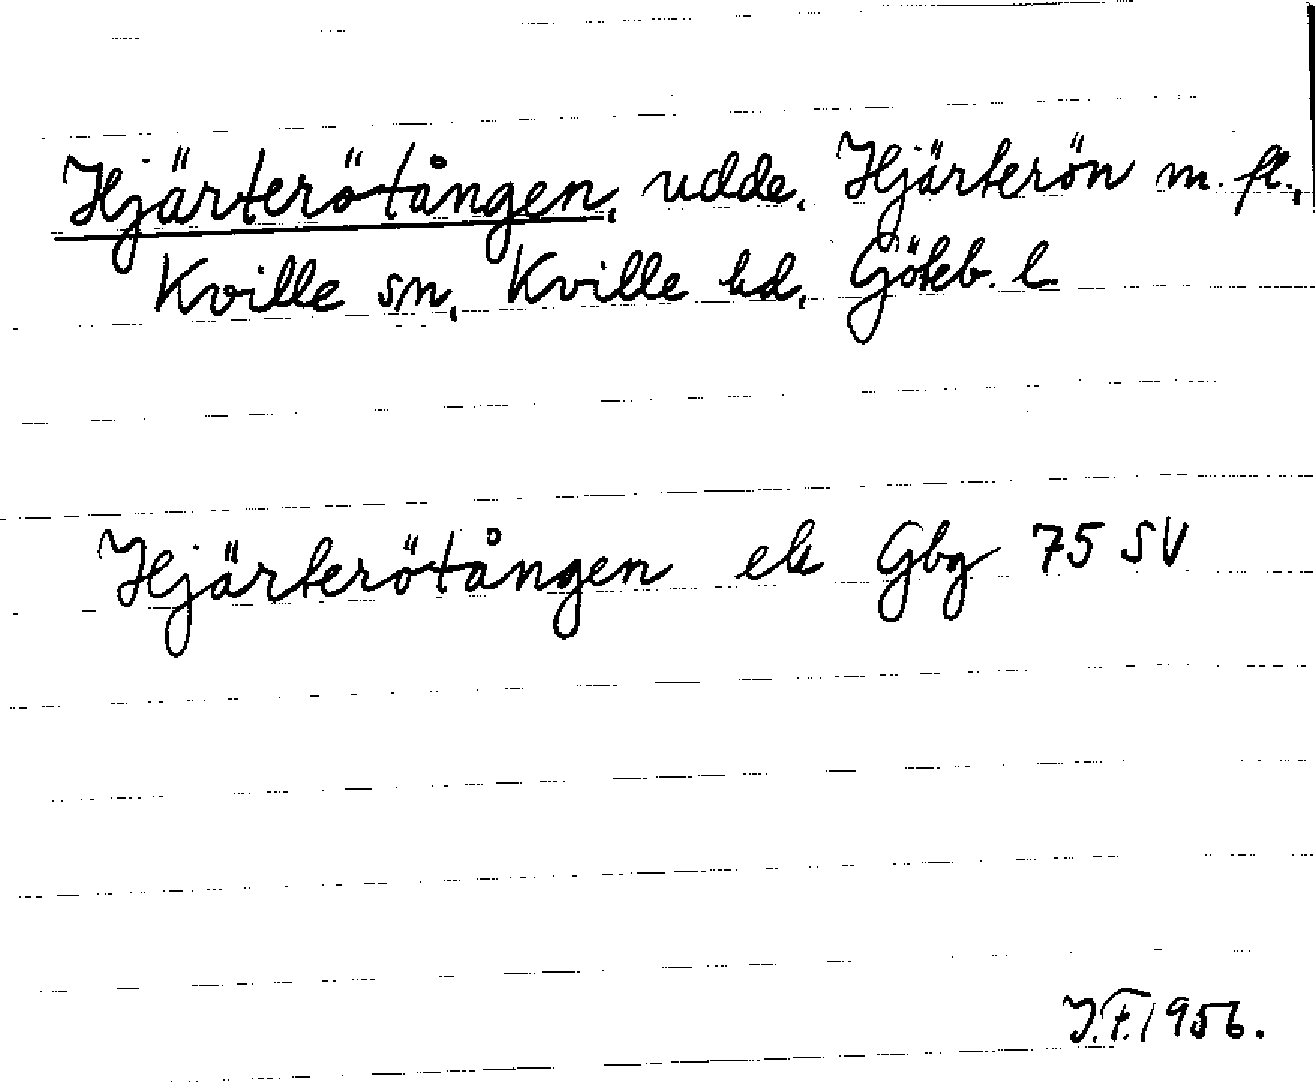 Hjärterötången, udde, Hjärterön m. fl.,
Kville sn, Kville hd, Göteb. l.
Hjärterötången ek Gbg 75 SV
J.F. 1956.